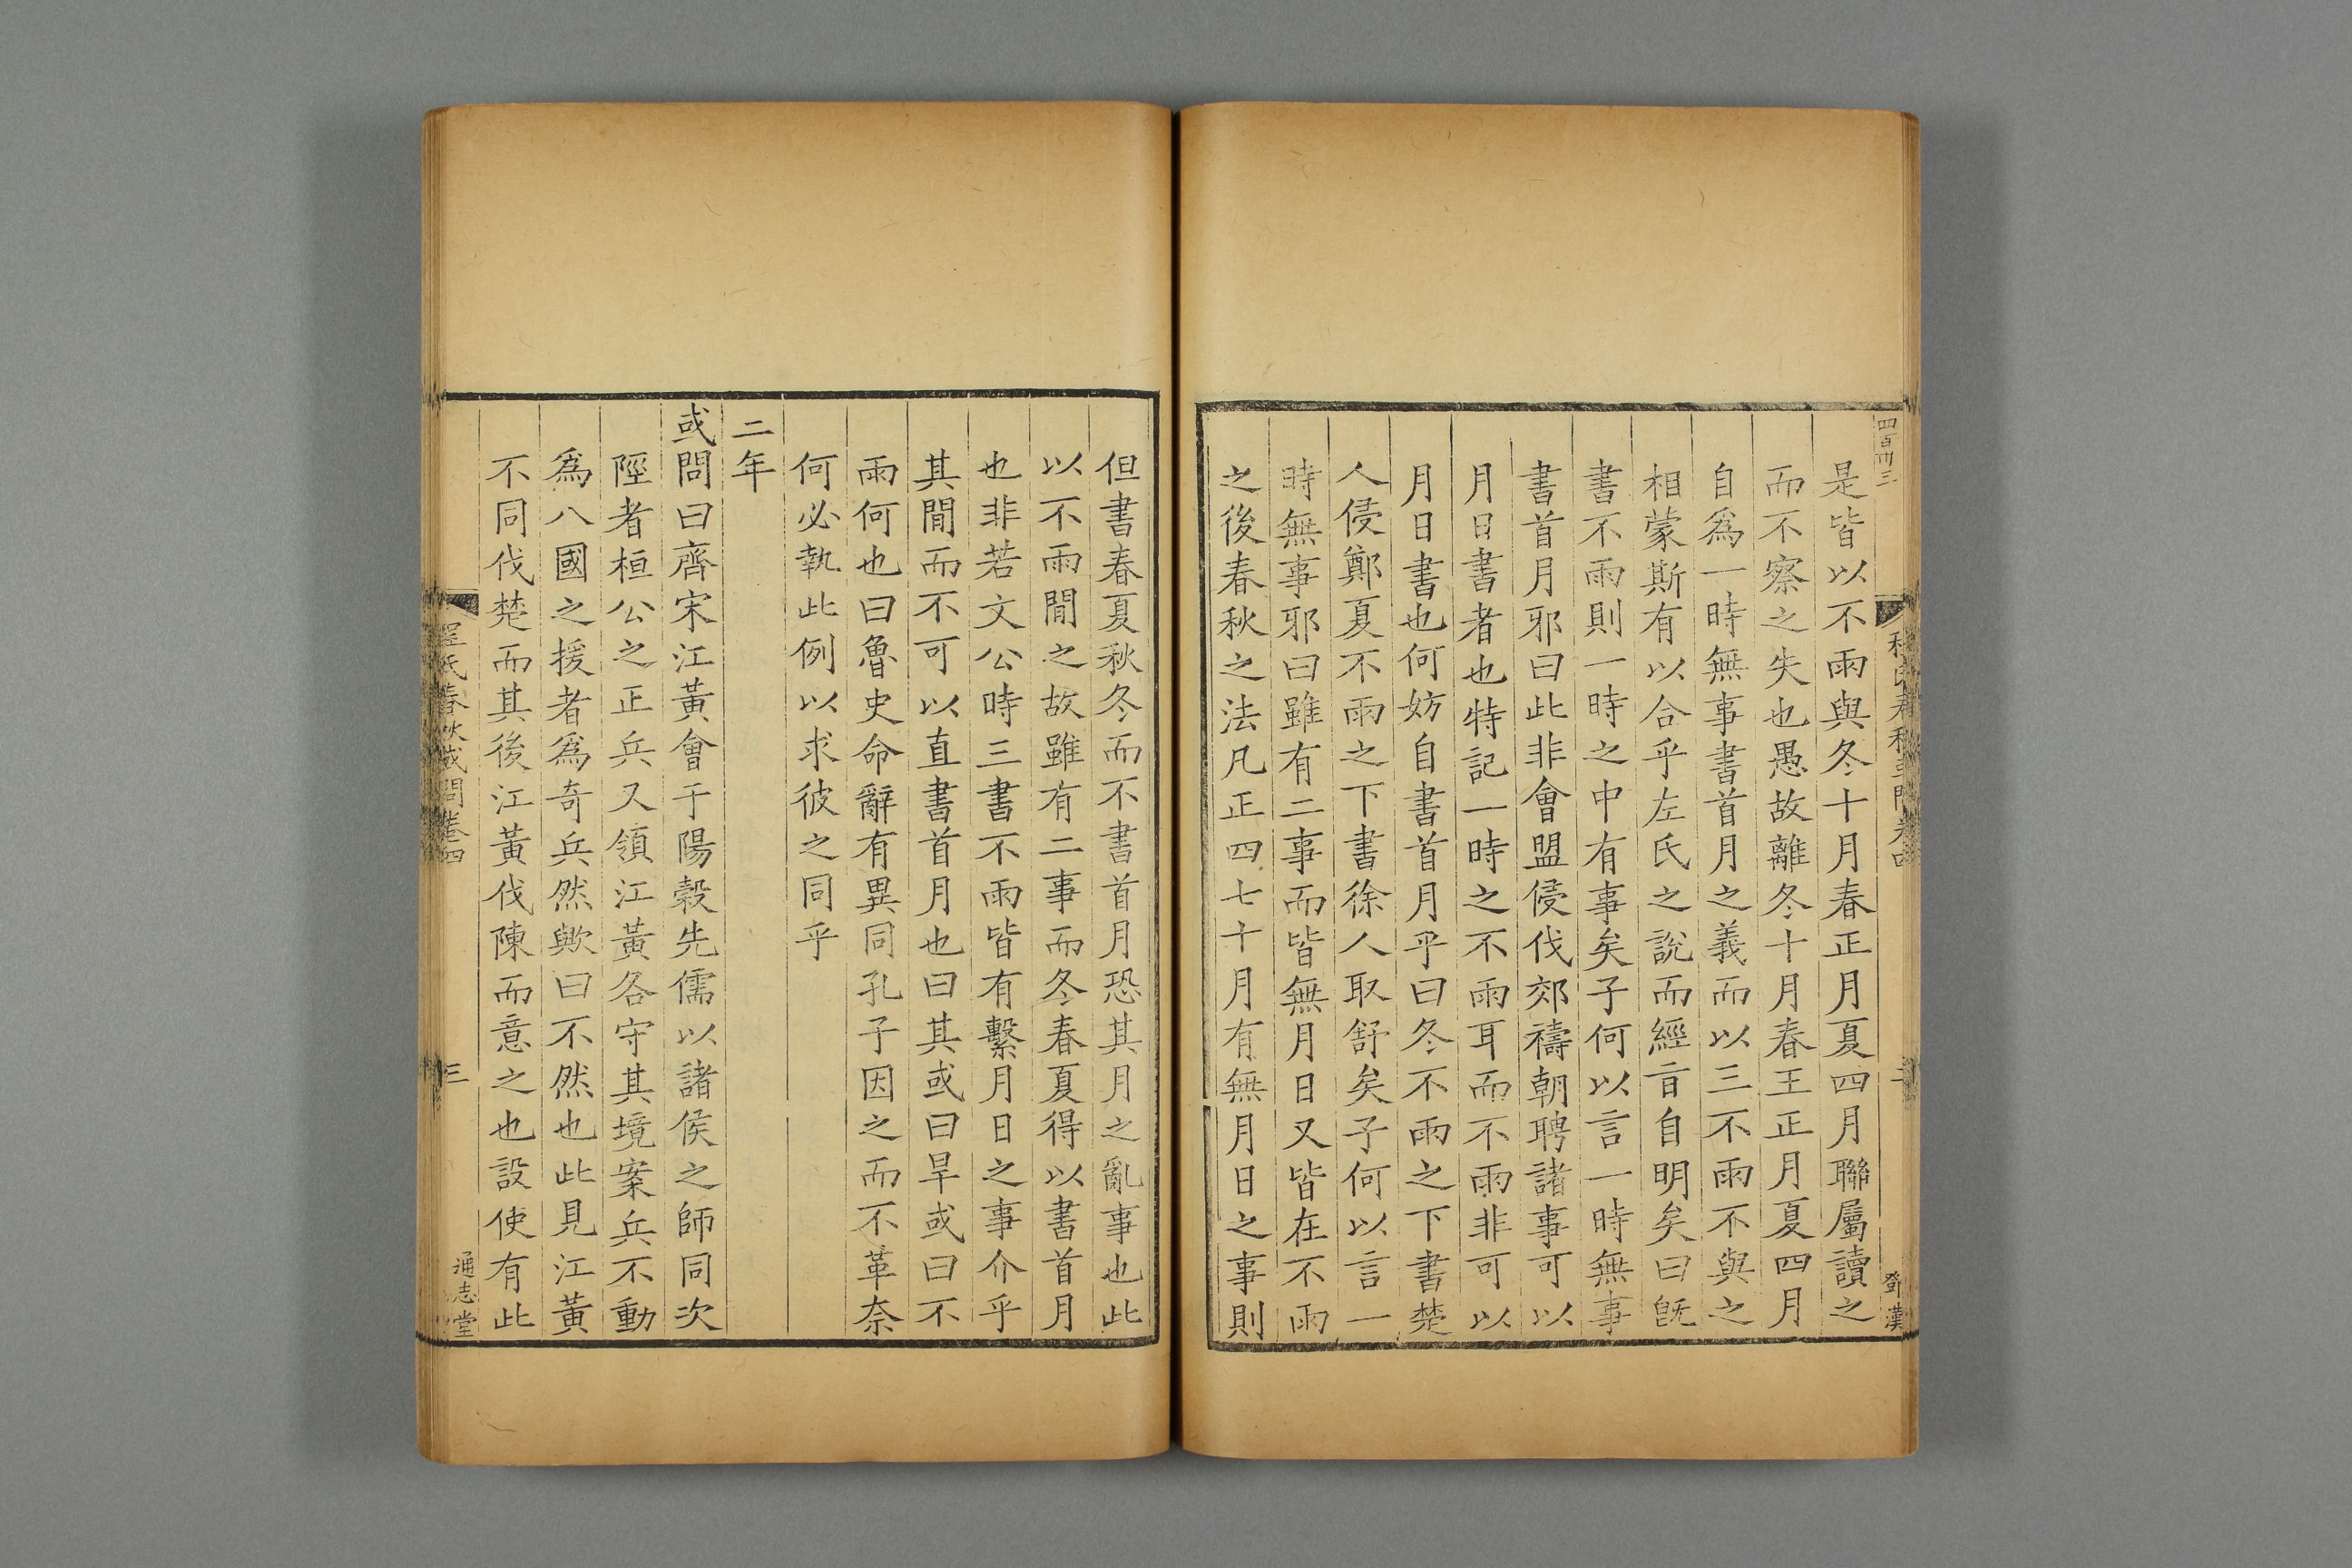 四百卅三
鄧漢
是皆以不雨與冬十月春正月夏四月聯屬讀之
而不察之失也愚故離冬十月春王正月夏四月
自爲一時無事書首月之義而以三不雨不與之
相蒙斯有以合乎左氏之說而經㫖自明矣曰旣
書不雨則一時之中有事矣子何以言一時無事
書首月邪曰此非會盟侵伐郊禱朝聘諸事可以
月日書者也特記一時之不雨耳而不雨非可以
月日書也何妨自書首月乎曰冬不雨之下書楚
人侵鄭夏不雨之下書徐人取舒矣子何以言一
時無事邪曰雖有二事而皆無月日又皆在不雨
之後春秋之法凡正四七十月有無月日之事則
但書春夏秋冬而不書首月恐其月之亂事也此
以不雨閒之故雖有二事而冬春夏得以書首月
也非若文公時三書不雨皆有繫月日之事介乎
其閒而不可以直書首月也曰其或曰旱或曰不
雨何也曰魯史命辭有異同孔子因之而不革奈
何必執此例以求彼之同乎
二年
或問曰齊宋江黃會于陽穀先儒以諸侯之師同次
陘者桓公之正兵又領江黃各守其境案兵不動
爲八國之援者爲奇兵然歟曰不然也此見江黃
不同伐楚而其後江黃伐陳而意之也設使有此
程氏春秋或問卷四
三
通志堂